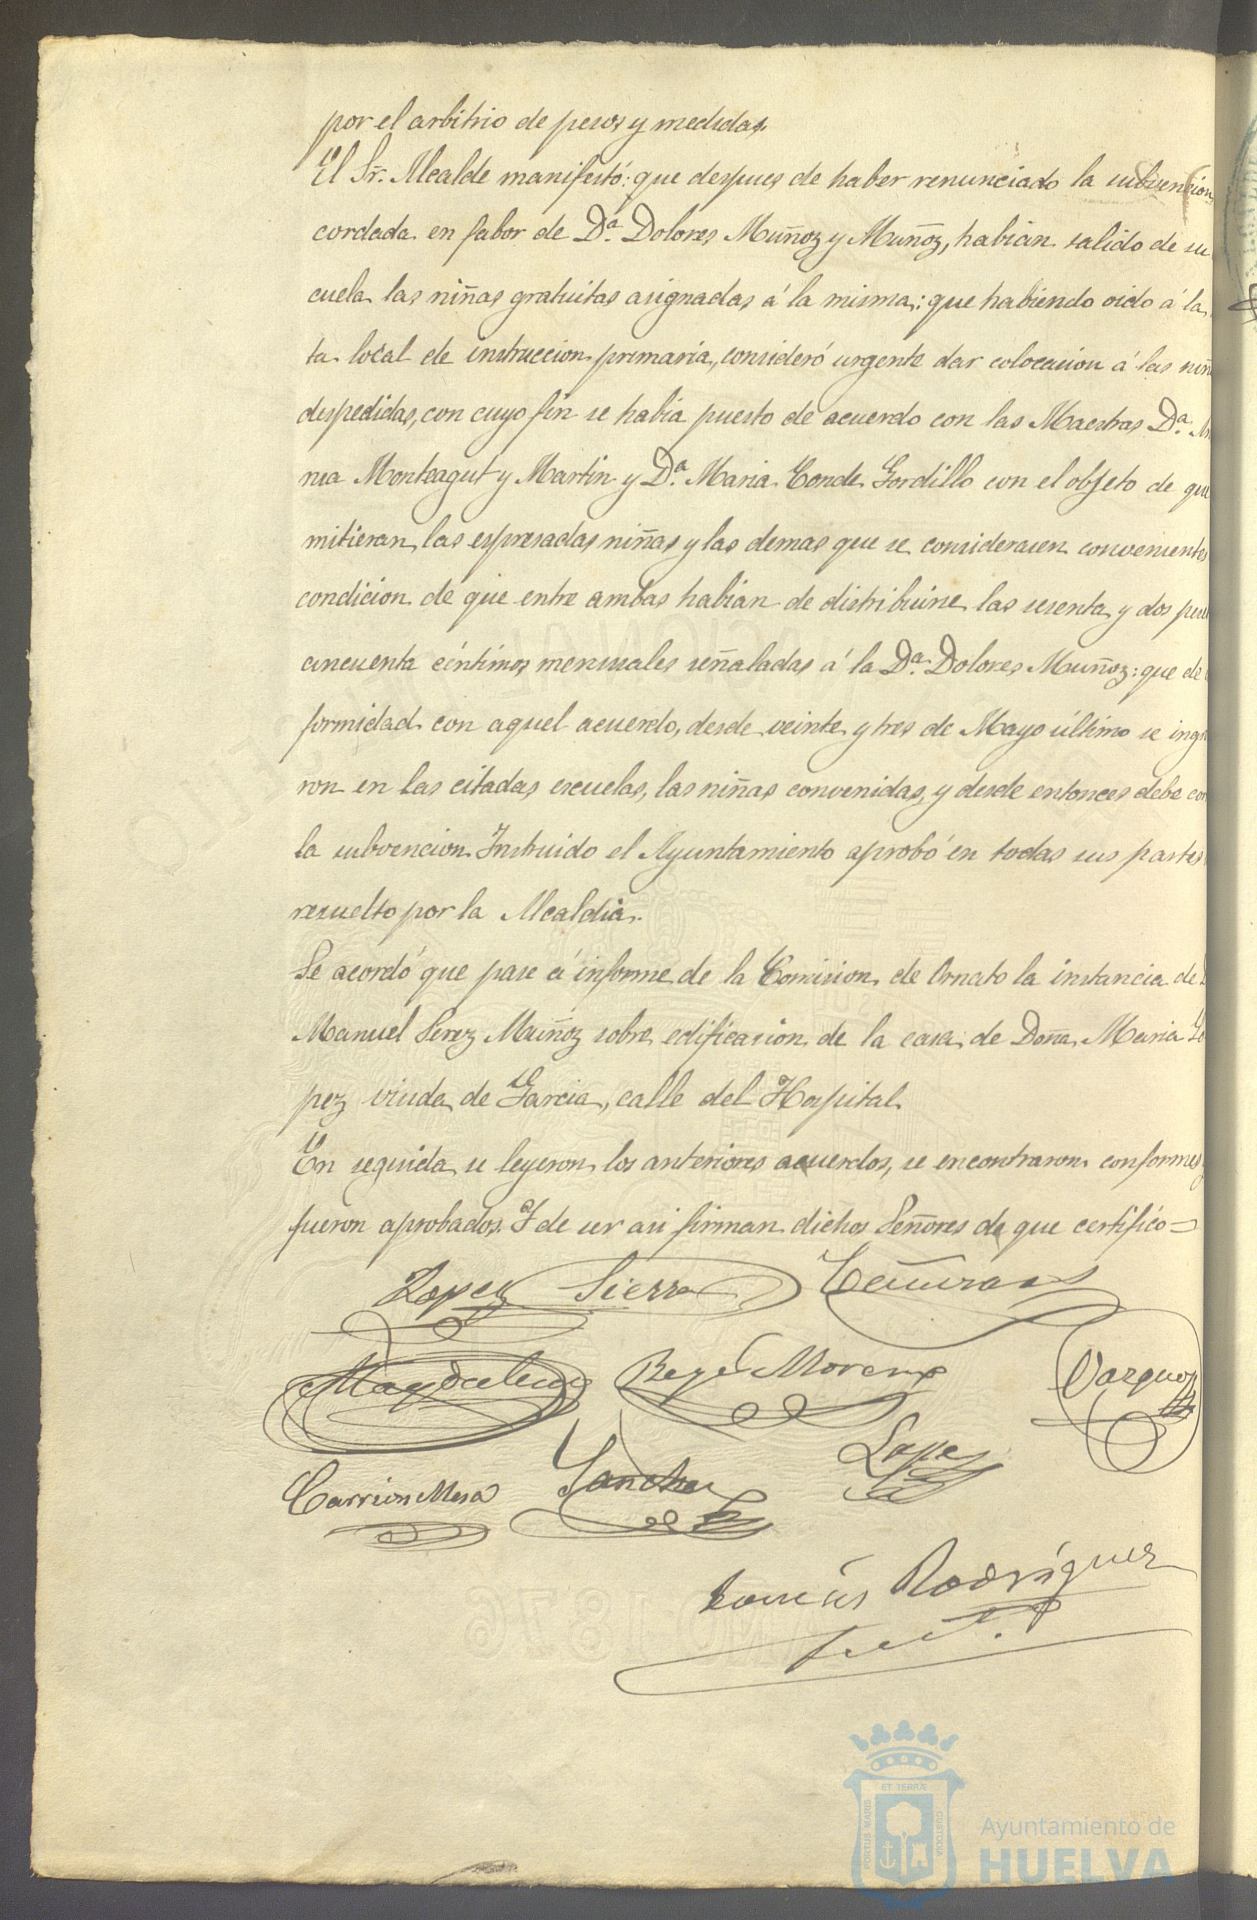 por el arbitrio de pesos y medidas.
El Sr. Alcalde manifestó: que despues de haber renunciado la subvencion
cordada en fabor de Dª. Dolores Muñoz y Muñoz, habian salido de su
cuela las niñas gratuitas asignadas á la misma: que habiendo oido á la
ta local de instruccion primaria, consideró urgente dar colocacion á las niñ
despedidas, con cuyo fin se habia puesto de acuerdo con las Maestras Dª.
nia Monteagut y Martin y Dª. Maria Conde Gordillo con el objeto de que
mitieran las espresadas niñas y las demas que se considerasen convenientes
condicion de que entre ambas habian de distribuirse las sesenta y dos pese
cincuenta céntimos mensuales señaladas á la Dª. Dolores Muñoz: que de
formidad con aquel acuerdo, desde veinte y tres de Mayo último se ingr
ron en las citadas escuelas, las niñas convenidas, y desde entonces debe con
la subvencion. Instruido el Ayuntamiento aprobó en todas sus partes
resuelto por la Alcaldia.
Se acordó que pase á informe de la Comision de Ornato la instancia de
Manuel Perez Muñoz sobre edificacion de la casa de Doña Maria Lo
pez viuda de Garcia, calle del Hospital.
En seguida se leyeron los anteriores acuerdos, se encontraron conformes
fueron aprobados. Y de ser asi firman dichos Señores de que certifico=
Lopez Sierra
Magdalena Rey Moreno Vazquez
Carrion Mesa Sanchez Lopez
Tomás Rodriguez
AÑO 1876
ET TERRÆ
PORTUS MARIS CUSTODIA
Ayuntamiento de
HUELVA